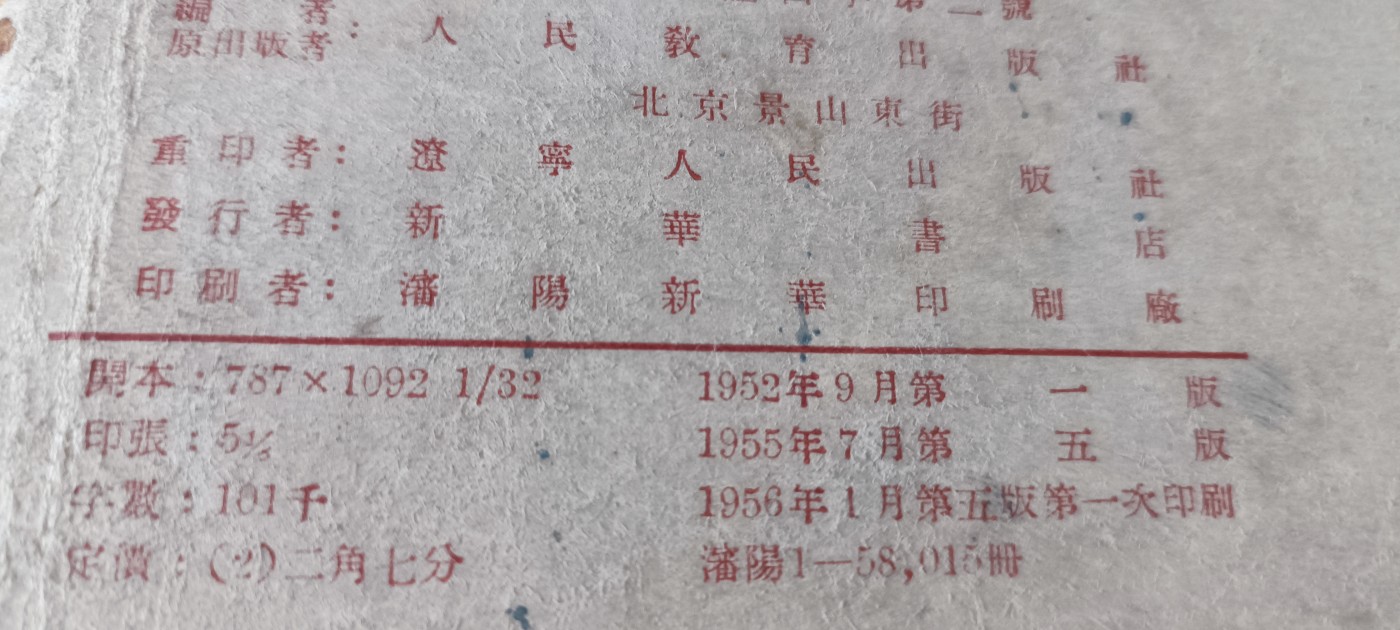 第一號
編者
原出版者：人民教育出版社
北京景山東街
重印者：遼寧人民出版社
發行者：新華書店
印刷者：瀋陽新華印刷廠
開本：787×1092 1/32
1952年9月第一版
印張：5
1955年7月第五版
字數：101千
1956年1月第五版第一次印刷
定價：(2)二角七分
瀋陽1—58,015冊